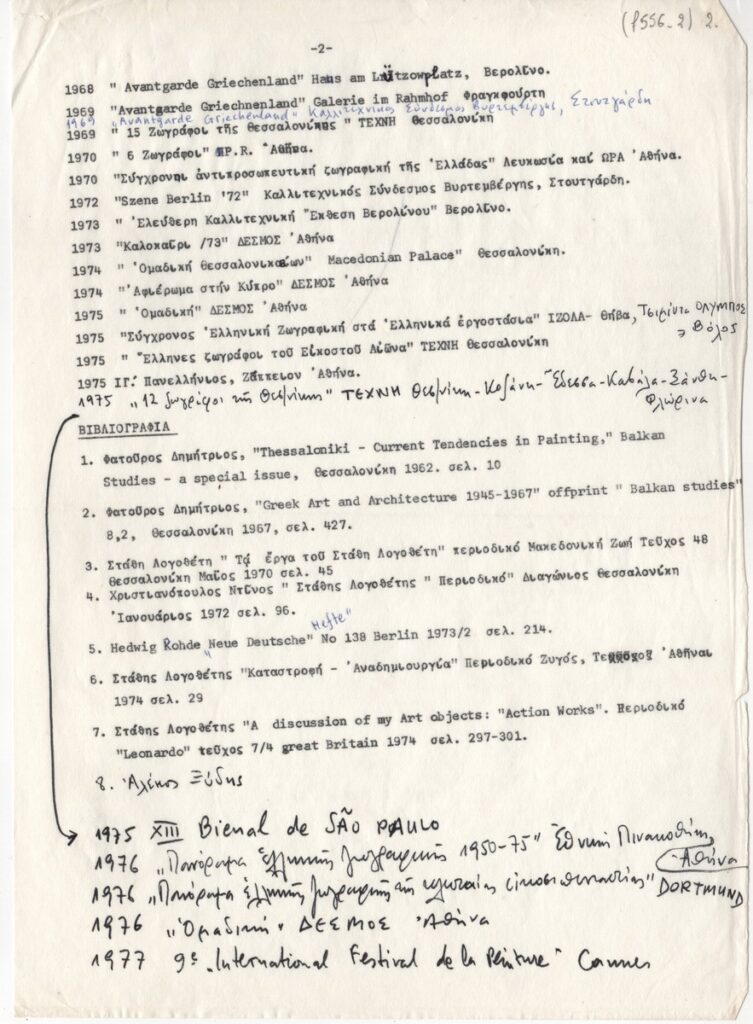 (f556-2) 2.
-2-
1968 " Avantgarde Griechenland" Haus am Lützowplatz, Βερολῖνο.
1969 "Avantgarde Griechnenland" Galerie im Rahmhof Φραγκφούρτη
1969 "Avantgarde Griechenland" Καλλιτεχνικός Σύνδεσμος Βυρτεμβέργης, Στουτγάρδη
1969 " 15 Ζωγράφοι τῆς Θεσσαλονίκης " ΤΕΧΝΗ Θεσσαλονίκη
1970 " 6 Ζωγράφοι" P.R. Ἀθήνα.
1970 "Σύγχρονη ἀντιπροσωπευτική ζωγραφική τῆς Ἑλλάδας" Λευκωσία καί ΩΡΑ Ἀθήνα.
1972 "Szene Berlin '72" Καλλιτεχνικός Σύνδεσμος Βυρτεμβέργης, Στουτγάρδη.
1973 " Ἐλεύθερη Καλλιτεχνική Ἔκθεση Βερολίνου" Βερολῖνο.
1973 "Καλοκαῖρι /73" ΔΕΣΜΟΣ Ἀθήνα
1974 " Ὁμαδική Θεσσαλονικέων" Macedonian Palace" Θεσσαλονίκη.
1974 "Ἀφιέρωμα στήν Κύπρο" ΔΕΣΜΟΣ Ἀθήνα
1975 " Ὁμαδική" ΔΕΣΜΟΣ Ἀθήνα
1975 "Σύγχρονος Ἑλληνική Ζωγραφική στά Ἑλληνικά ἐργοστάσια" ΙΖΟΛΑ- Θήβα, Τσιμέντα ΟΛΥΜΠΟΣ
→ Βόλος
1975 " Ἕλληνες ζωγράφοι τοῦ Εἰκοστοῦ Αἰῶνα" ΤΕΧΝΗ Θεσσαλονίκη
1975 ΙΓ: Πανελλήνιος, Ζάππειον Ἀθήνα.
1975 "12 ζωγράφοι τῆς Θεσ/νίκης" ΤΕΧΝΗ Θεσ/νίκη-Κοζάνη-Ἔδεσσα-Καβάλα-Ξάνθη-
Φλώρινα
ΒΙΒΛΙΟΓΡΑΦΙΑ
1. Φατοῦρος Δημήτριος, "Thessaloniki - Current Tendencies in Painting," Balkan
Studies - a special issue, Θεσσαλονίκη 1962. σελ. 10
2. Φατοῦρος Δημήτριος, "Greek Art and Architecture 1945-1967" offprint " Balkan studies"
8,2, Θεσσαλονίκη 1967, σελ. 427.
3. Στάθη Λογοθέτη " Τά ἔργα τοῦ Στάθη Λογοθέτη" περιοδικό Μακεδονική Ζωή Τεῦχος 48
Θεσσαλονίκη Μαῖος 1970 σελ. 45
4. Χριστιανόπουλος Ντῖνος " Στάθης Λογοθέτης " Περιοδικό" Διαγώνιος Θεσσαλονίκη
Ἰανουάριος 1972 σελ. 96.
5. Hedwig Rohde "Neue Deutsche Hefte" No 138 Berlin 1973/2 σελ. 214.
6. Στάθης Λογοθέτης "Καταστροφή - Ἀναδημιουργία" Περιοδικό Ζυγός, Τεῦχος 7 Ἀθῆναι
1974 σελ. 29
7. Στάθης Λογοθέτης "A discussion of my Art objects: "Action Works". Περιοδικό
"Leonardo" τεῦχος 7/4 great Britain 1974 σελ. 297-301.
8. Ἀλέκος Ξύδης
1975 XIII Bienal de SÃO PAULO
1976 "Πανόραμα ἑλληνικῆς ζωγραφικῆς 1950-75" Ἐθνική Πινακοθήκη,
Ἀθήνα
1976 "Πανόραμα ἑλληνικῆς ζωγραφικῆς τῆς τελευταίας εἰκοσιπενταετίας" DORTMUND
1976 "Ὁμαδική" ΔΕΣΜΟΣ Ἀθήνα
1977 9ο "International Festival de la Peinture" Cannes